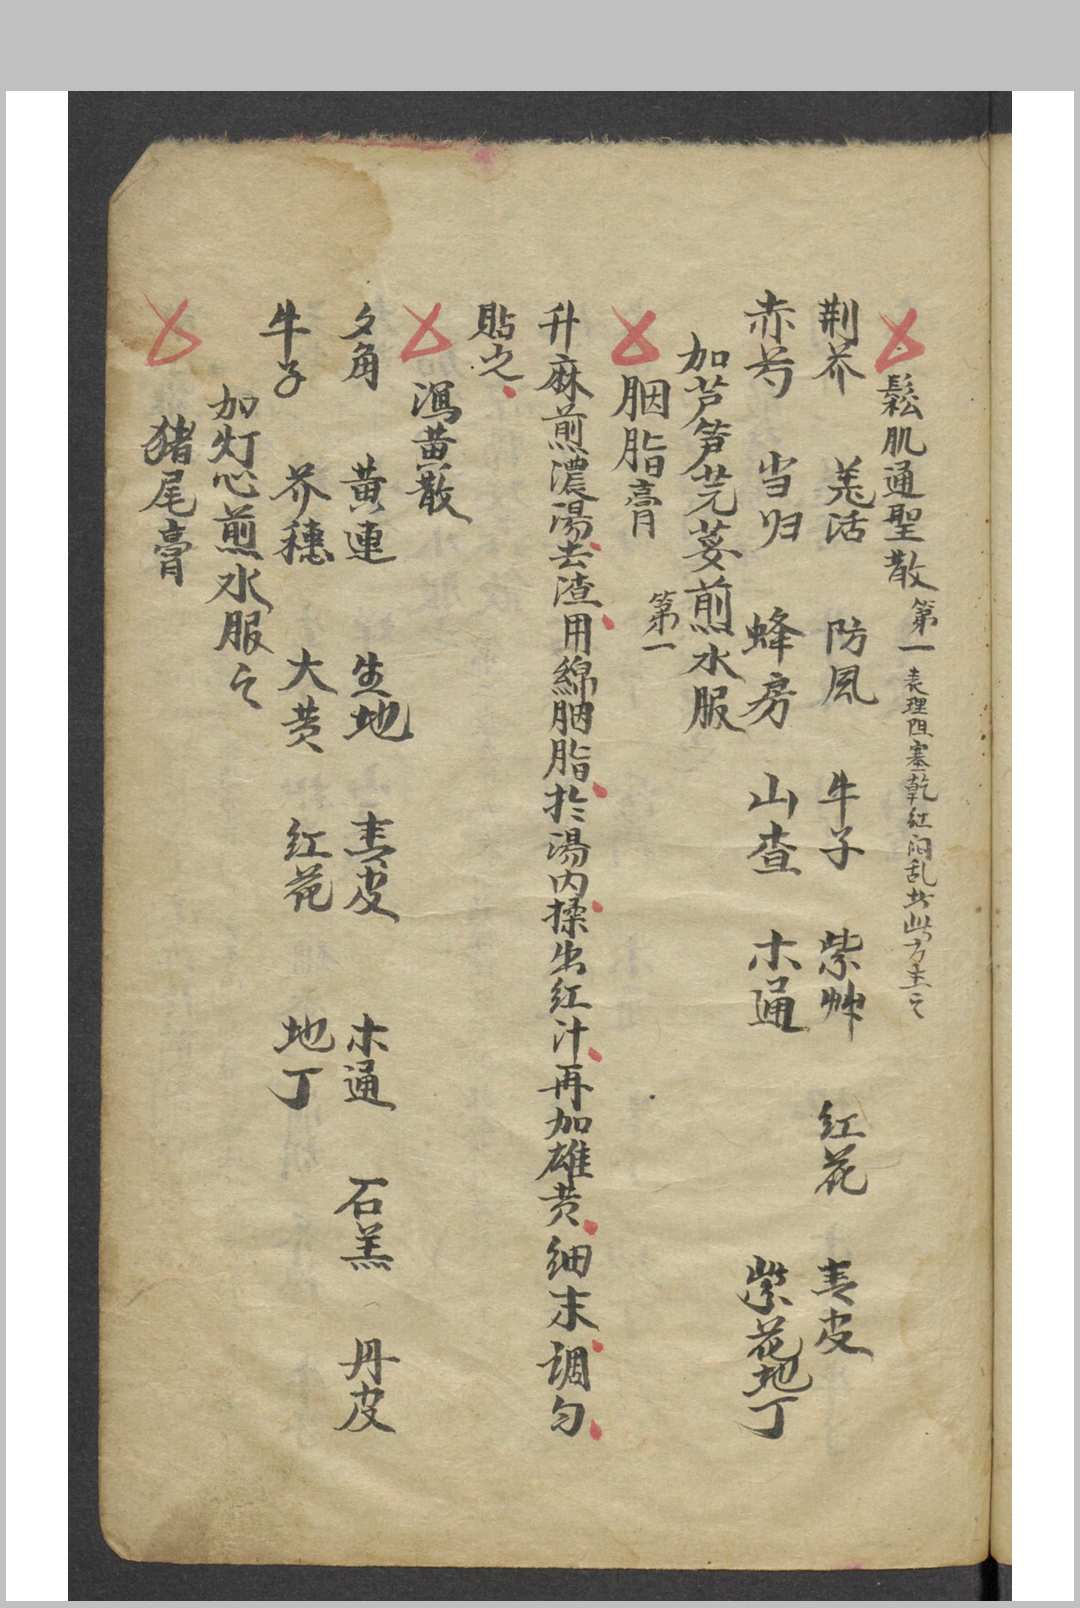 鬆肌通聖散 第一 表理阻塞乾紅泊乱者此方主之
荆芥 羌活 防風 牛子 紫艸 红花 青皮
赤芍 当归 蜂房 山查 木通 紫花地丁
加芦笋芫荽煎水服
胭脂膏 第一
升麻煎濃湯去渣用綿胭脂於湯内揉出红汁再加雄黄细末調匀
貼之
瀉黄散
夕角 黄連 生地 青皮 木通 石羔 丹皮
牛子 芥穗 大黄 红花 地丁
加灯心煎水服之
猪尾膏